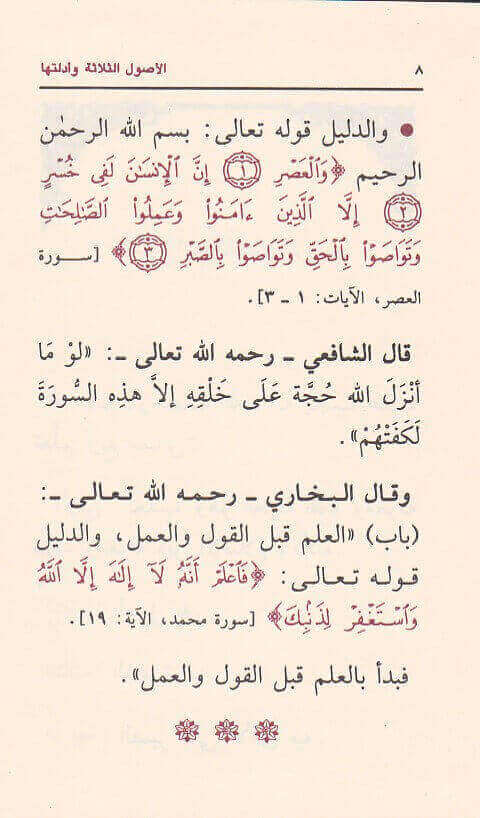 ٨ الأصول الثلاثة وأدلتها
● والدليل قوله تعالى: بسم الله الرحمٰن
الرحيم ﴿وَٱلْعَصْرِ ۝١ إِنَّ ٱلْإِنسَٰنَ لَفِى خُسْرٍ
۝٢ إِلَّا ٱلَّذِينَ ءَامَنُوا۟ وَعَمِلُوا۟ ٱلصَّٰلِحَٰتِ
وَتَوَاصَوْا۟ بِٱلْحَقِّ وَتَوَاصَوْا۟ بِٱلصَّبْرِ ۝٣﴾ [سورة
العصر، الآيات: ١ ـ ٣].
قال الشافعي ـ رحمه الله تعالى ـ: «لوْ مَا
أنْزَلَ الله حُجَّة عَلَى خَلْقِهِ إلاَّ هذِهِ السُّورَةَ
لَكَفَتْهُمْ».
وقال البخاري ـ رحمه الله تعالى ـ:
(باب) «العلم قبل القول والعمل، والدليل
قوله تعالى: ﴿فَٱعْلَمْ أَنَّهُۥ لَآ إِلَٰهَ إِلَّا ٱللَّهُ
وَٱسْتَغْفِرْ لِذَنۢبِكَ﴾ [سورة محمد، الآية: ١٩].
فبدأ بالعلم قبل القول والعمل».